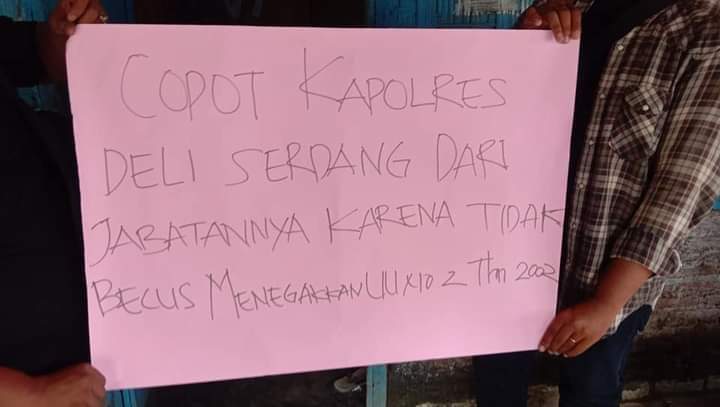 COPOT KAPOLRES
DELI SERDANG DARI
JABATANNYA KARENA TIDAK
BECUS MENEGAKKAN UU No 2 Thn 2002